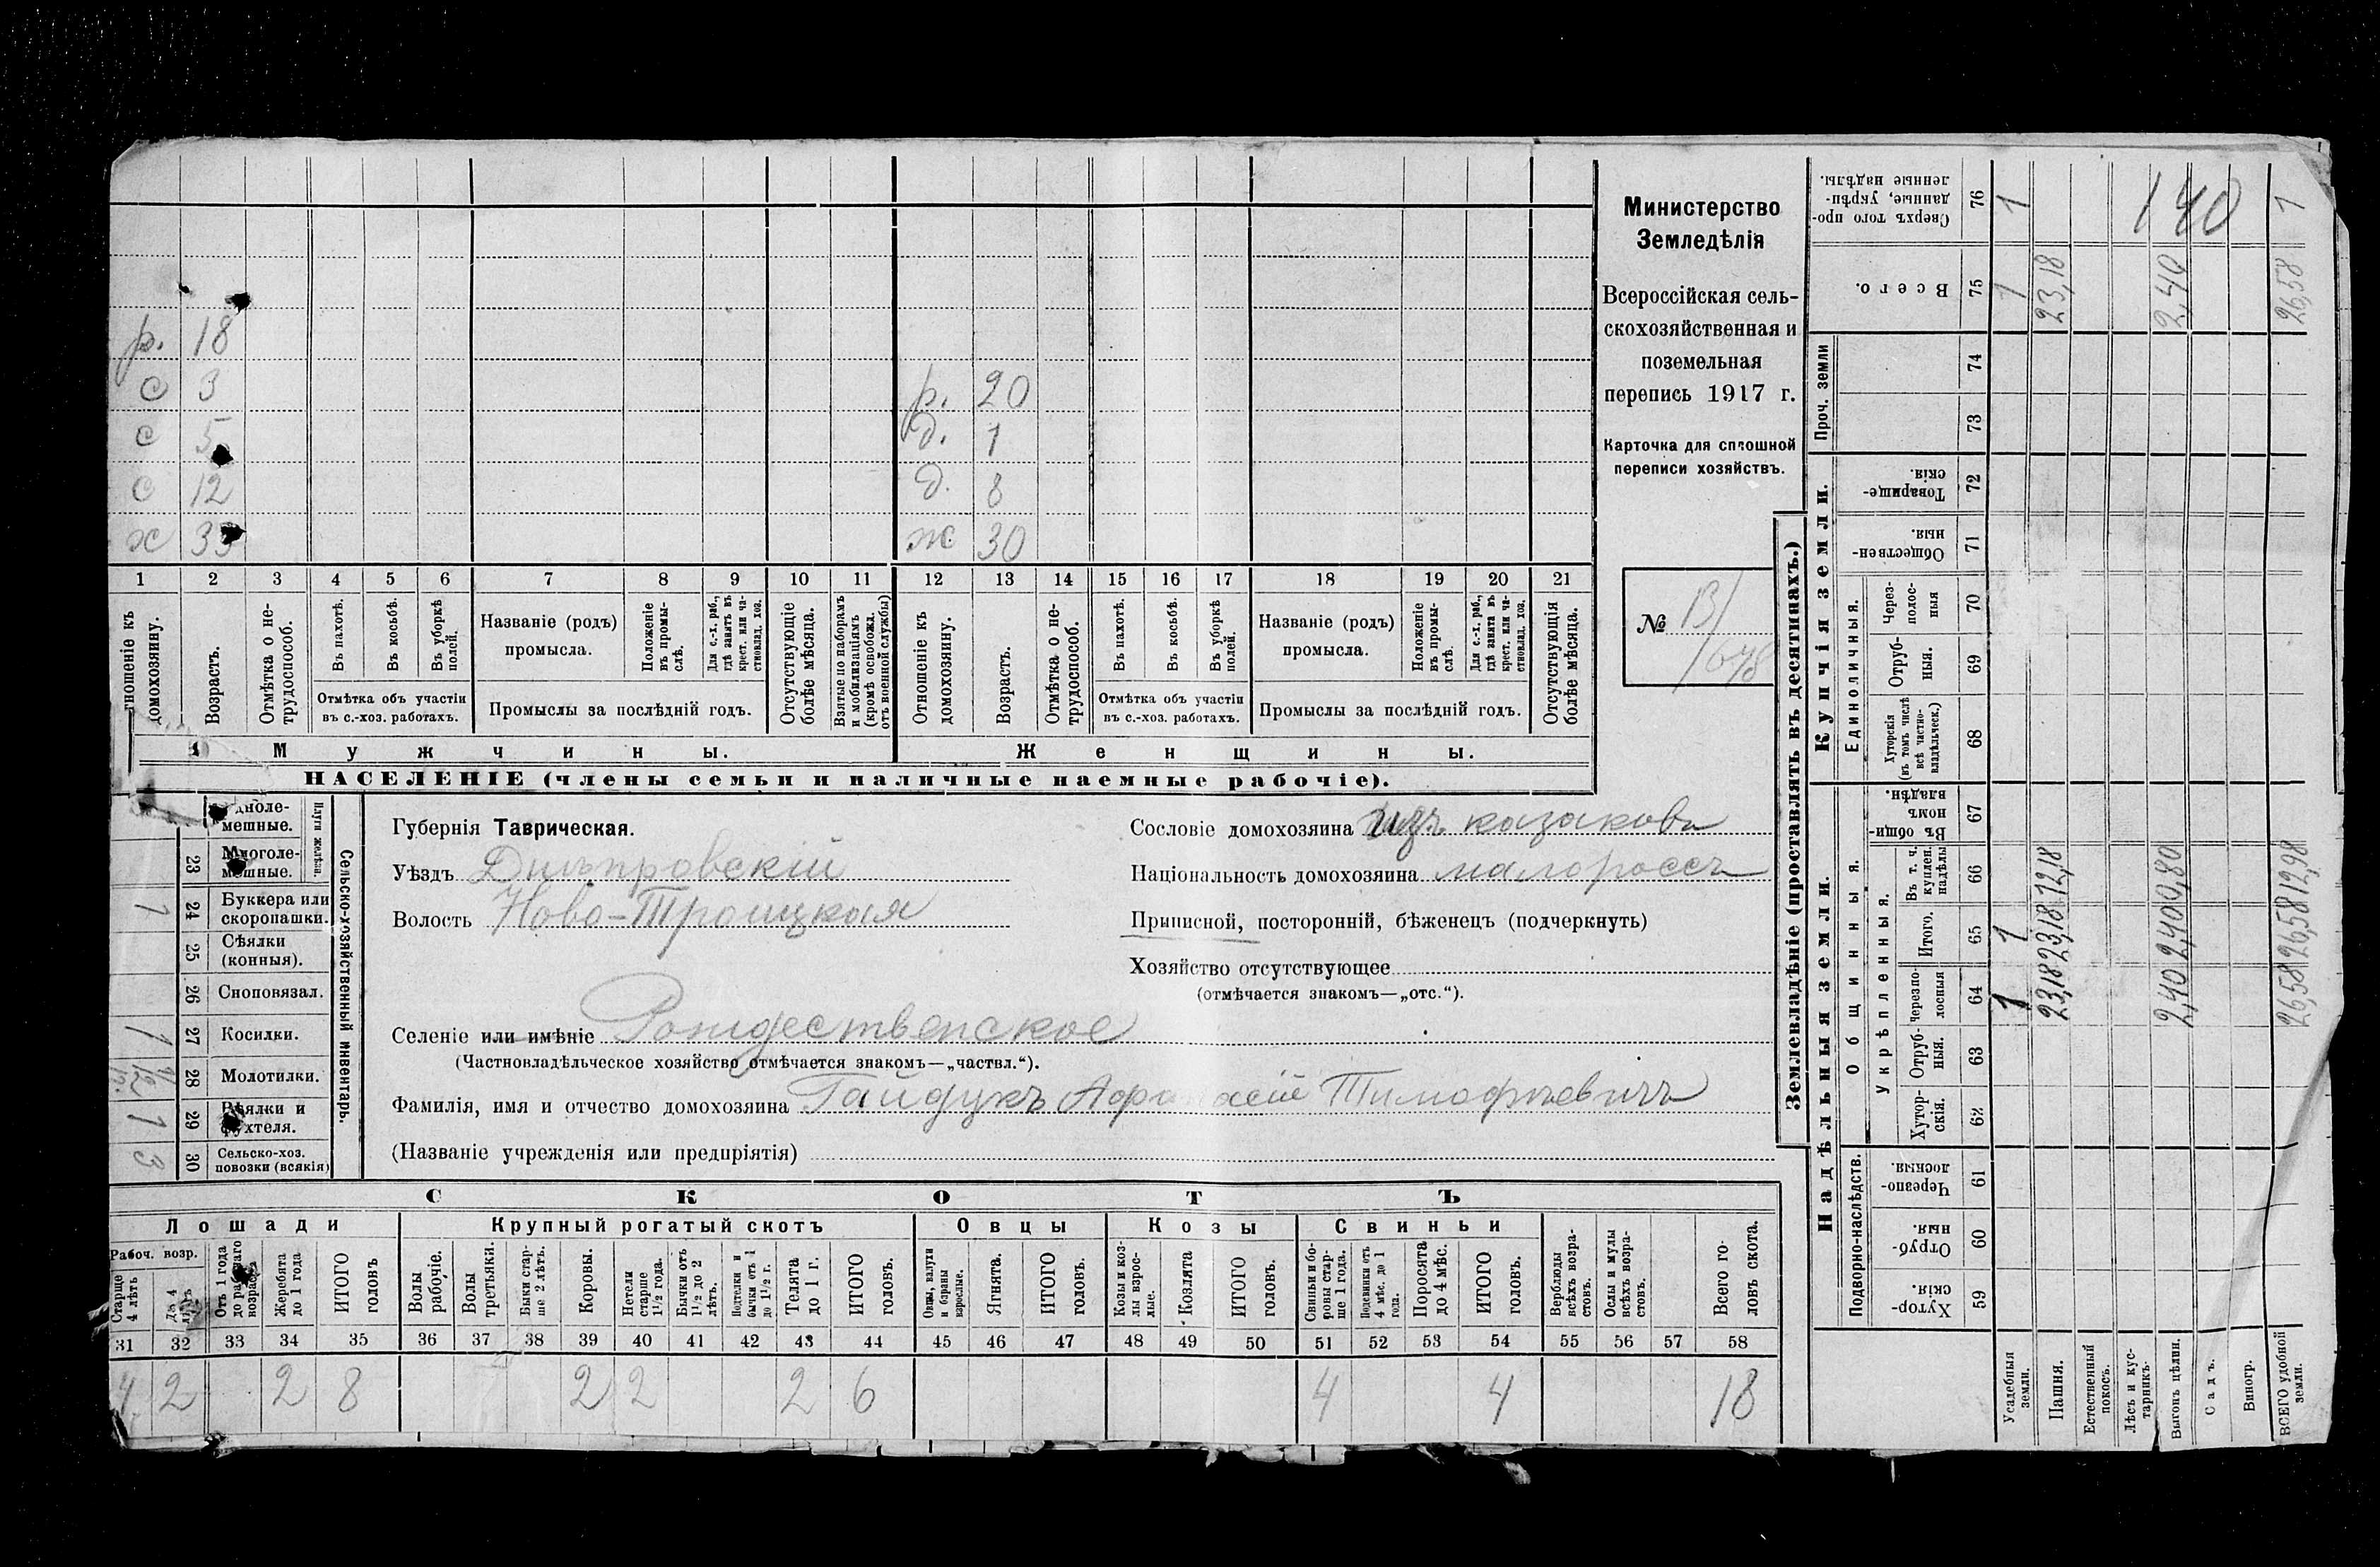 р. 18
с 3
р. 20
с 5
д. 1
с 12
д. 8
х 35
ж 30
1 2 3 4 5 6 7 8 9 10 11 12 13 14 15 16 17 18 19 20 21
домохозяину.
Возрастъ.
Отмѣтка о не-
трудоспособ.
Въ пахотѣ.
Въ косьбѣ.
Въ уборкѣ
полей.
Отмѣтка объ участіи
въ с.-хоз. работахъ.
Названіе (родъ)
промысла.
Положеніе
въ промы-
слѣ.
Для с.-х. раб.,
гдѣ занятъ въ
крест. или ча-
стновлад. хоз.
Промыслы за послѣдній годъ.
Отсутствующіе
болѣе мѣсяца.
Взятые по наборамъ
и мобилизаціямъ
(кромѣ освобожд.
отъ военной службы)
Отношеніе къ
домохозяину.
Возрастъ.
Отмѣтка о не-
трудоспособ.
Въ пахотѣ.
Въ косьбѣ.
Въ уборкѣ
полей.
Отмѣтка объ участіи
въ с.-хоз. работахъ.
Названіе (родъ)
промысла.
Положеніе
въ промы-
слѣ.
Для с.-х. раб.,
гдѣ занята въ
крест. или ча-
стновлад. хоз.
Промыслы за послѣдній годъ.
Отсутствующія
болѣе мѣсяца.
Мужчины.
Женщины.
НАСЕЛЕНІЕ (члены семьи и наличные наемные рабочіе).
Министерство
Земледѣлія
Всероссійская сель-
скохозяйственная и
поземельная
перепись 1917 г.
Карточка для сплошной
переписи хозяйствъ.
№ 13/
/678
Сельско-хозяйственный инвентарь.
Плуги желѣзн.
мешные.
23 Многоле-
мешные.
24 Буккера или
скоропашки. 1
25 Сѣялки
(конныя).
26 Сноповязал.
27 Косилки. 1
28 Молотилки. 1/2
29 Вѣялки и
фухтеля. 1
30 Сельско-хоз.
повозки (всякія) 3
Губернія Таврическая.
Уѣздъ Днѣпровскій
Волость Ново-Троицкая
Селеніе или имѣніе Рождественское
(Частновладѣльческое хозяйство отмѣчается знакомъ—„частвл.“).
Фамилія, имя и отчество домохозяина Гайдукъ Афанасій Тимофѣевичъ
(Названіе учрежденія или предпріятія)
Сословіе домохозяина изъ казаковъ
Національность домохозяина малороссъ
Приписной, посторонній, бѣженецъ (подчеркнуть)
Хозяйство отсутствующее
(отмѣчается знакомъ—„отс.“).
СКОТЪ
Лошади
Крупный рогатый скотъ
Овцы
Козы
Свиньи
Рабоч. возр.
Старше
4 лѣтъ
До 4
лѣтъ
Отъ 1 года
до рабочаго
возраста
Жеребята
до 1 года
ИТОГО
головъ
Волы
рабочіе.
Волы
третьяки.
Быки стар-
ше 2 лѣтъ.
Коровы.
Нетели
старше
1½ года.
Бычки отъ
1½ до 2
лѣтъ.
Подтелки и
бычки отъ 1
до 1½ г.
Телята
до 1 г.
ИТОГО
головъ.
Овцы, валухи
и бараны
взрослые.
Ягнята.
ИТОГО
головъ.
Козы и коз-
лы взрос-
лые.
Козлята
ИТОГО
головъ.
Свиньи и бо-
ровы стар-
ше 1 года.
Подсвинки отъ
4 мѣс. до 1
года.
Поросята
до 4 мѣс.
ИТОГО
головъ.
Верблюды
всѣхъ возра-
стовъ.
Ослы и мулы
всѣхъ возра-
стовъ.
Всего го-
ловъ скота.
31 32 33 34 35 36 37 38 39 40 41 42 43 44 45 46 47 48 49 50 51 52 53 54 55 56 57 58
4 2 2 8 2 2 2 6 4 4 18
Землевладѣніе (проставлять въ десятинахъ.)
Надѣльныя земли.
Купчія земли.
Проч. земли
Подворно-наслѣдств.
Общинныя.
Укрѣпленныя.
Единоличныя.
Хутор-
скія.
Отруб-
ныя.
Черезпо-
лосныя.
Хутор-
скія.
Отруб-
ныя.
Черезпо-
лосныя
Итого.
Въ т. ч.
куплен.
надѣлы
Въ общи-
номъ
владѣн.
Хуторскія
(въ томъ числѣ
всѣ частно-
владѣльческ.)
Отруб-
ныя.
Через-
полос-
ныя
Обществен-
ныя.
Товарище-
скія.
Всего.
Сверхъ того про-
данные, укрѣп-
ленные надѣлы.
59 60 61 62 63 64 65 66 67 68 69 70 71 72 73 74 75 76
Усадебныя
земли. 1 1 1 1
Пашня. 23,18 23,18 12,18 23,18
Естественный
покосъ.
Лѣсъ и кус-
тарникъ.
Выгонъ цѣлин. 2,40 2,40 0,80 2,40
Садъ.
Виногр.
ВСЕГО удобной
земли. 26,58 26,58 12,98 26,58 1
140